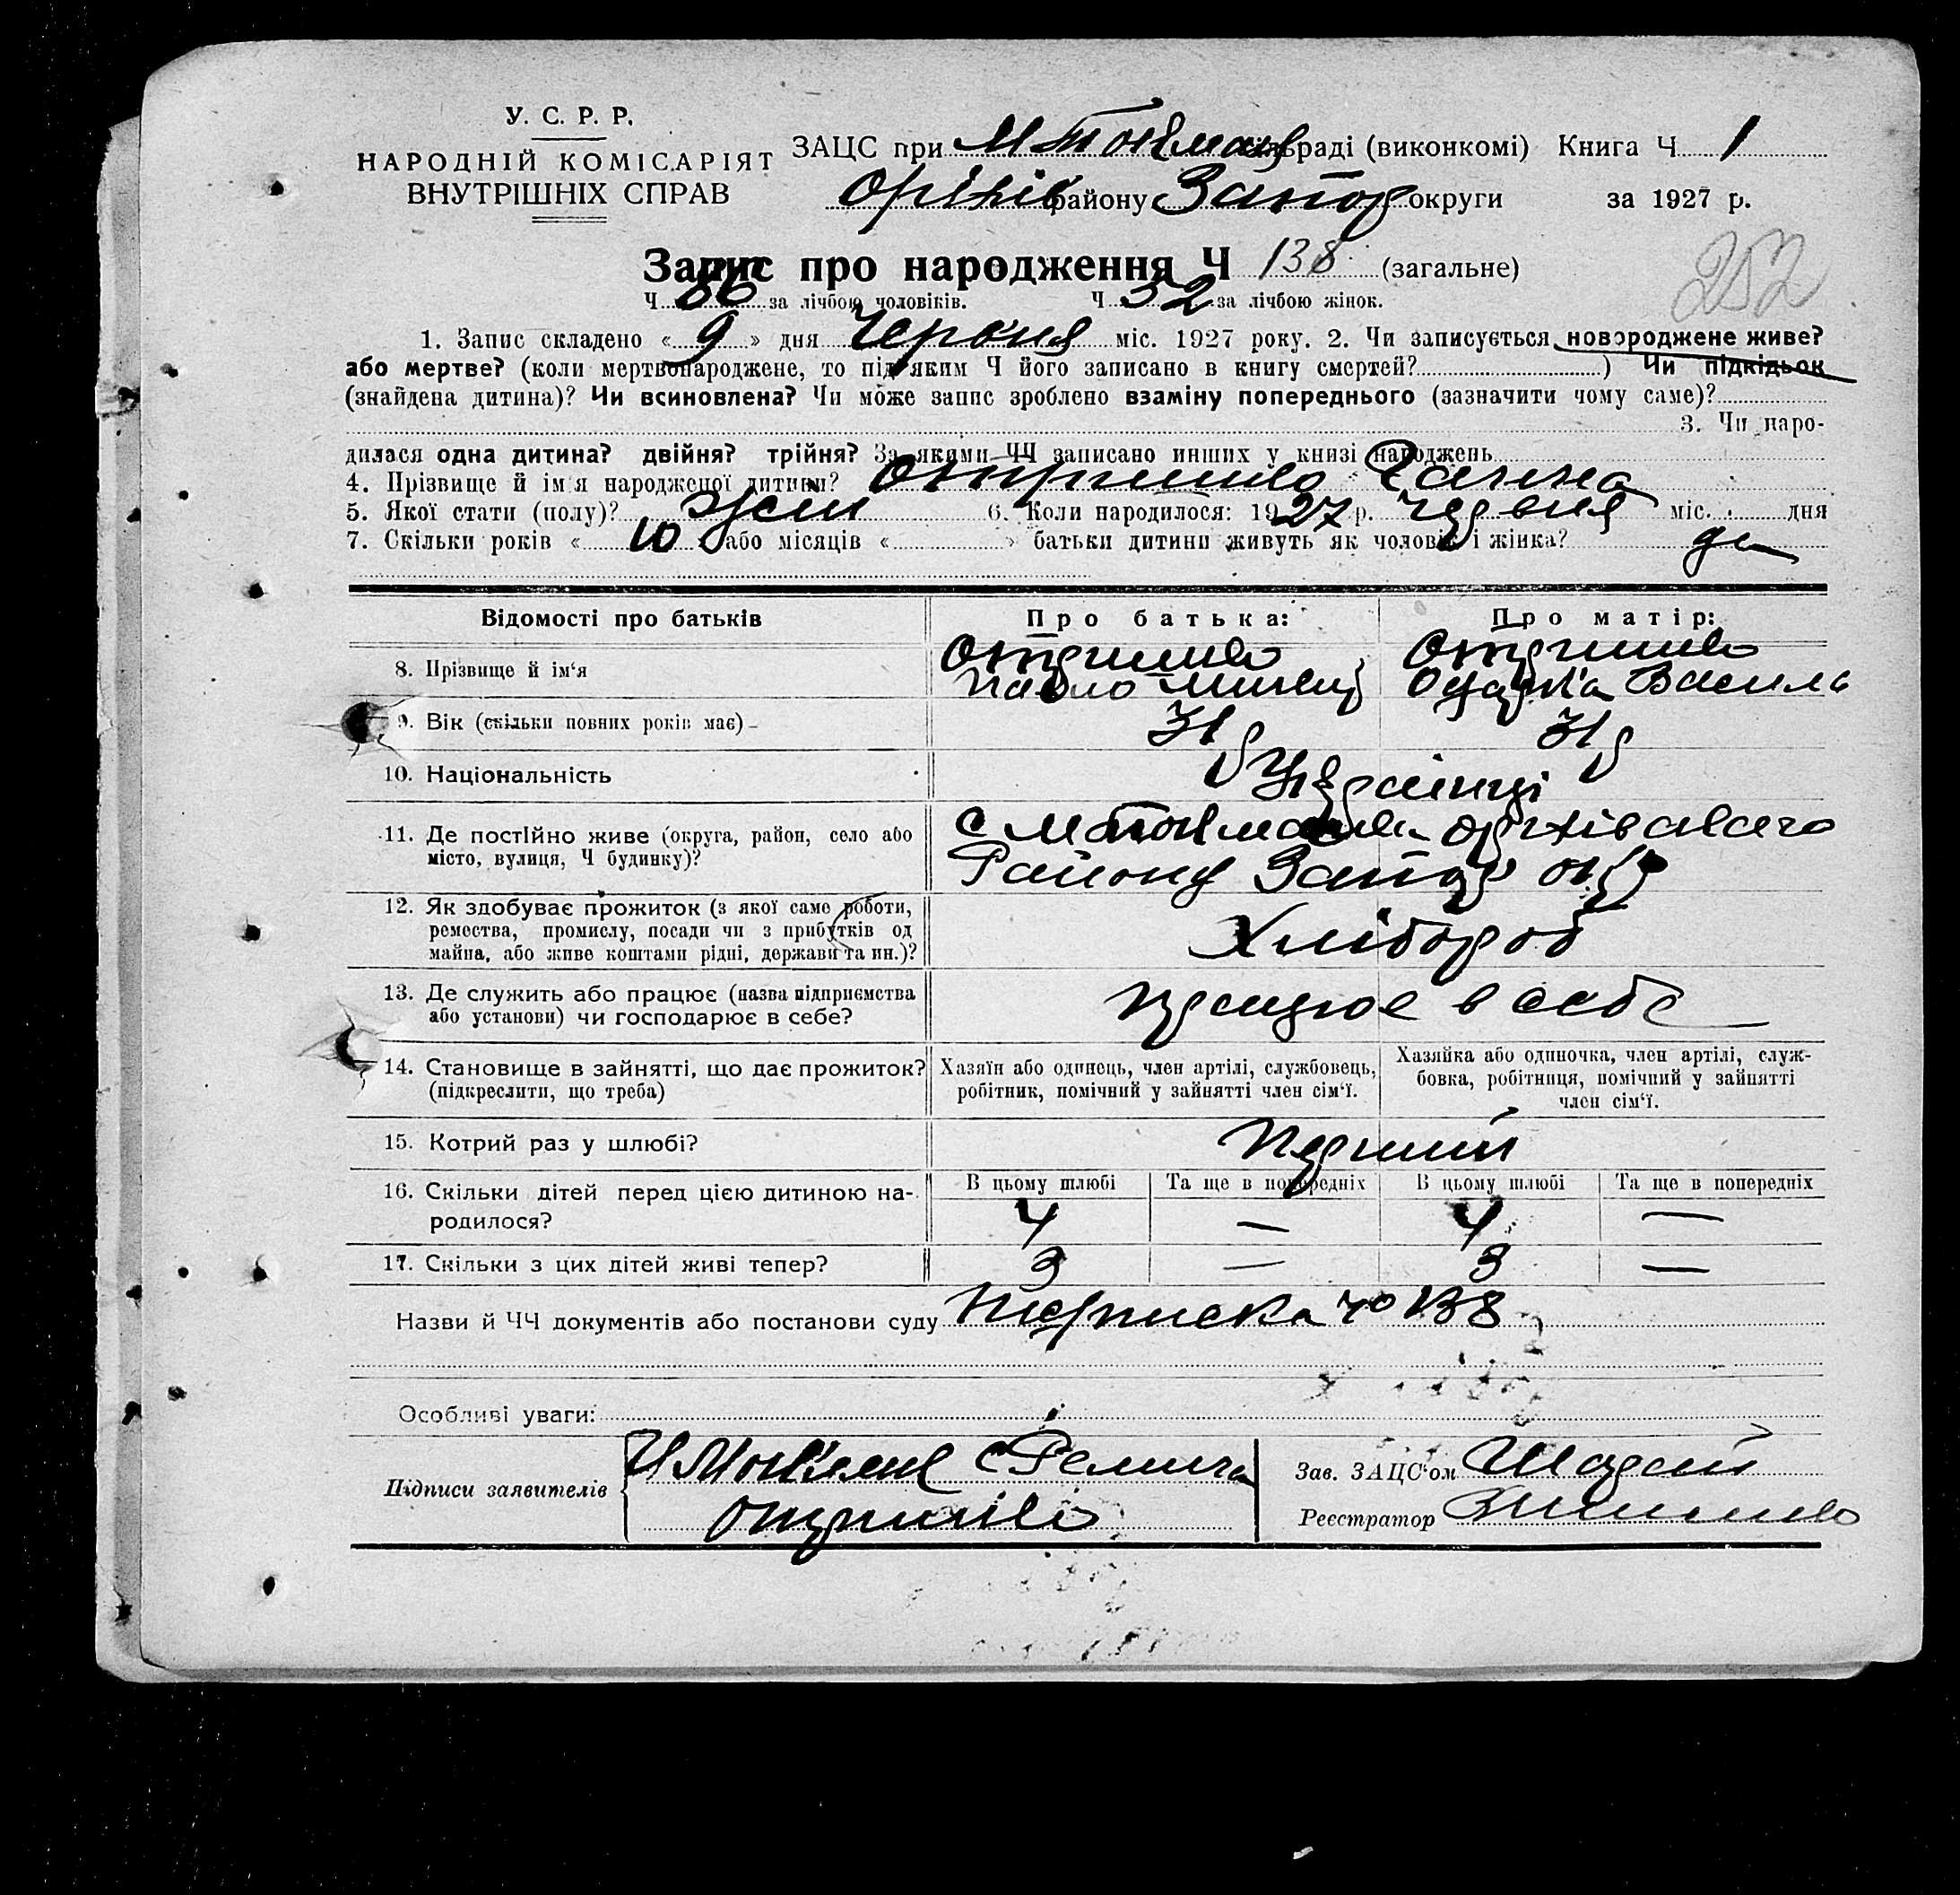 У. С. Р. Р.
НАРОДНІЙ КОМІСАРІЯТ
ВНУТРІШНІХ СПРАВ
ЗАЦС при М Токмац раді (виконкомі) Книга Ч 1
Оріхів району Запор округи за 1927 р.
Запис про народження Ч 138 (загальне)
252
Ч 86 за лічбою чоловіків. Ч 52 за лічбою жінок.
1. Запис складено « 9 » дня Червня міс. 1927 року. 2. Чи записується новороджене живе?
або мертве? (коли мертвонароджене, то під яким Ч його записано в книгу смертей? ) Чи підкідьок
(знайдена дитина)? Чи всиновлена? Чи може запис зроблено взаміну попереднього (зазначити чому саме)?
3. Чи наро-
дилася одна дитина? двійня? трійня? За якими ЧЧ записано инших у книзі народжень
4. Прізвище й ім'я народженої дитини? Галина
5. Якої стати (полу)? жен 6. Коли народилося: 1927 р. червня міс. дня
7. Скільки років « 10 » або місяців « » батьки дитини живуть як чоловік і жінка? да
Відомості про батьків Про батька: Про матір:
8. Прізвище й ім'я
Павло Василь
9. Вік (скільки повних років має) 31 р 31 р
10. Національність Українці
11. Де постійно живе (округа, район, село або
місто, вулиця, Ч будинку)?
Району Запор окр
12. Як здобуває прожиток (з якої саме роботи,
ремества, промислу, посади чи з прибутків од
майна, або живе коштами рідні, держави та ин.)?
Хлібороб
13. Де служить або працює (назва підприємства
або установи) чи господарює в себе?
працює в себе
14. Становище в зайнятті, що дає прожиток?
(підкреслити, що треба)
Хазяїн або одинець, член артілі, службовець,
робітник, помічний у зайнятті член сім'ї.
Хазяйка або одиночка, член артілі, служ-
бовка, робітниця, помічний у зайнятті
член сім'ї.
15. Котрий раз у шлюбі? Перший
16. Скільки дітей перед цією дитиною на-
родилося?
В цьому шлюбі Та ще в попередніх В цьому шлюбі Та ще в попередніх
4 — 4 —
17. Скільки з цих дітей живі тепер? 3 — 3 —
Назви й ЧЧ документів або постанови суду 138
Особливі уваги:
Підписи заявителів
Зав. ЗАЦС'ом
Реєстратор